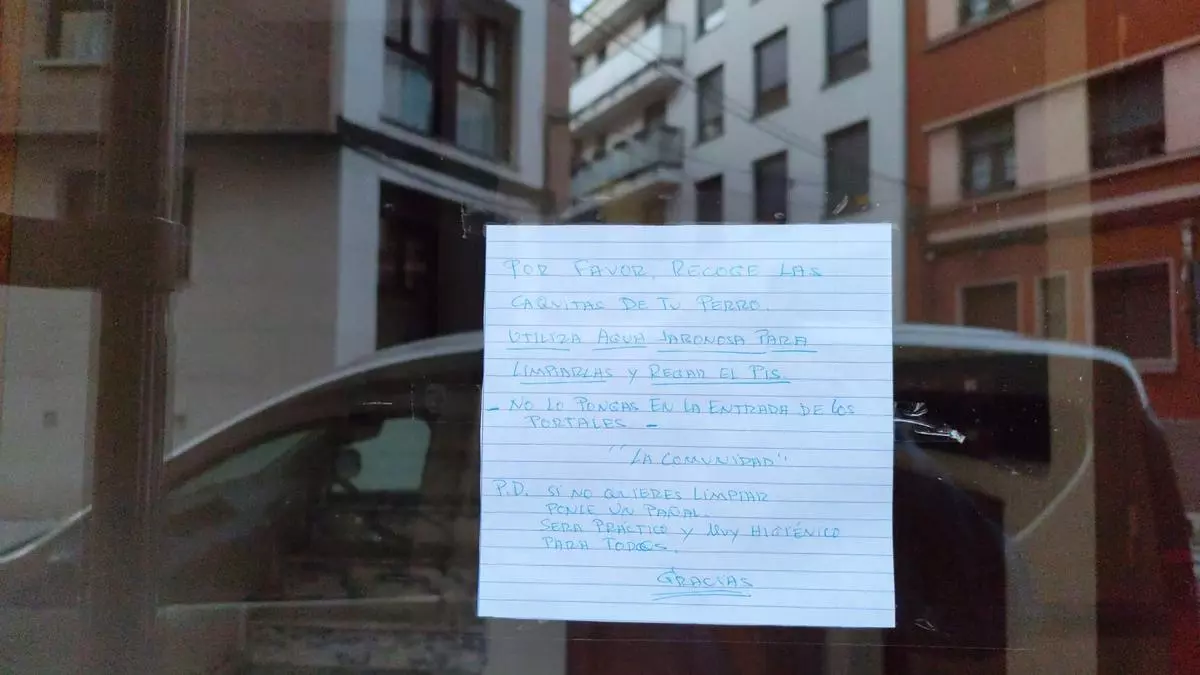 POR FAVOR, RECOGE LAS
CAQUITAS DE TU PERRO.
UTILIZA AGUA JABONOSA PARA
LIMPIARLAS Y REGAR EL PIS.
- NO LO PONGAS EN LA ENTRADA DE LOS
PORTALES -
"LA COMUNIDAD"
P.D. SI NO QUIERES LIMPIAR
PONLE UN PAÑAL.
SERA PRÁCTICO Y MUY HIGIÉNICO
PARA TODOS.
GRACIAS